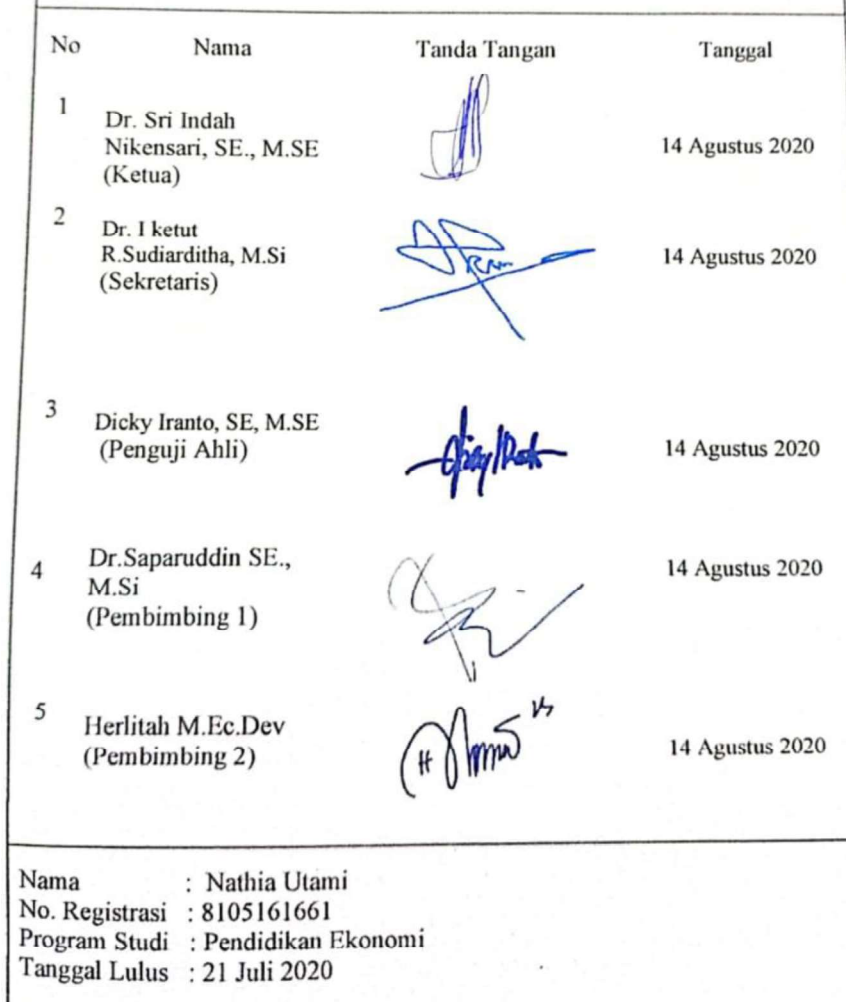 No Nama Tanda Tangan Tanggal
1 Dr. Sri Indah
Nikensari, SE., M.SE 14 Agustus 2020
(Ketua)
2 Dr. I ketut
R.Sudiarditha, M.Si 14 Agustus 2020
(Sekretaris)
3 Dicky Iranto, SE, M.SE
(Penguji Ahli) 14 Agustus 2020
4 Dr.Saparuddin SE., 14 Agustus 2020
M.Si
(Pembimbing 1)
5 Herlitah M.Ec.Dev
(Pembimbing 2) 14 Agustus 2020
Nama : Nathia Utami
No. Registrasi : 8105161661
Program Studi : Pendidikan Ekonomi
Tanggal Lulus : 21 Juli 2020